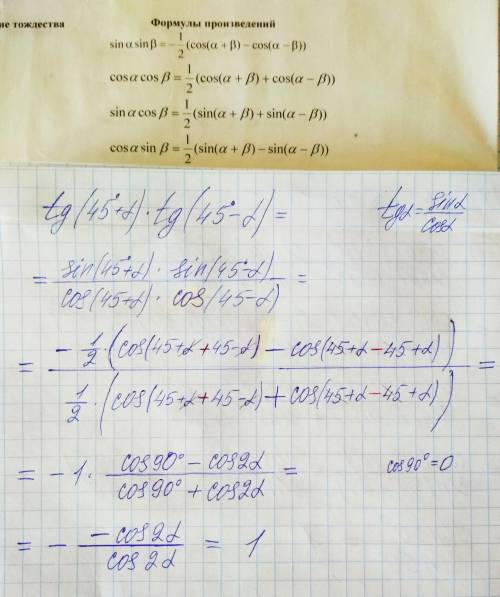 ие тождества Формулы произведений
sin α sin β = -1/2 (cos(α + β) - cos(α - β))
cos α cos β = 1/2 (cos(α + β) + cos(α - β))
sin α cos β = 1/2 (sin(α + β) + sin(α - β))
cos α sin β = 1/2 (sin(α + β) - sin(α - β))
tg(45°+α) · tg(45°-α) = tgα = sinα/cosα
= (sin(45°+α) · sin(45°-α))/(cos(45+α) · cos(45-α)) =
= (-1/2 · (cos(45+α+45-α) - cos(45+α-45+α)))/(1/2 · (cos(45+α+45-α) + cos(45+α-45+α))) =
= -1 · (cos90° - cos2α)/(cos90° + cos2α) = cos90° = 0
= - (-cos2α)/(cos2α) = 1